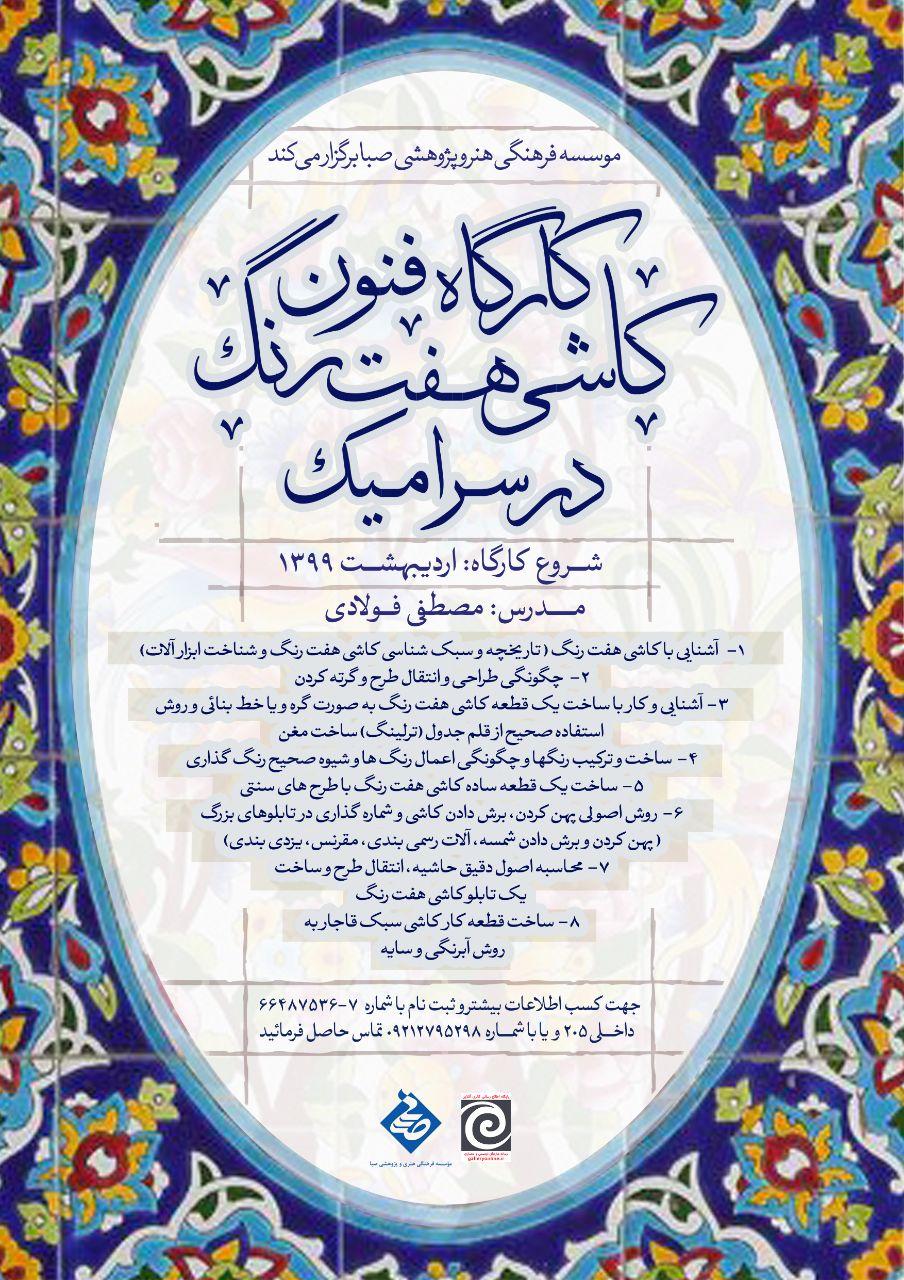 موسسه فرهنگی هنر و پژوهشی صبا برگزار می‌کند
کارگاه فنون
کاشی هفت رنگ
در سرامیک
شروع کارگاه: اردیبهشت ۱۳۹۹
مدرس: مصطفی فولادی
۱- آشنایی با کاشی هفت رنگ ( تاریخچه و سبک شناسی کاشی هفت رنگ و شناخت ابزارآلات)
۲- چگونگی طراحی و انتقال طرح و گرته کردن
۳- آشنایی و کار با ساخت یک قطعه کاشی هفت رنگ به صورت گره و یا خط بنائی و روش
استفاده صحیح از قلم جدول (ترلینگ) ساخت مغن
۴- ساخت و ترکیب رنگها و چگونگی اعمال رنگ ها و شیوه صحیح رنگ گذاری
۵- ساخت یک قطعه ساده کاشی هفت رنگ با طرح های سنتی
۶- روش اصولی پهن کردن، برش دادن کاشی و شماره گذاری در تابلوهای بزرگ
( پهن کردن و برش دادن شمسه، آلات رسمی بندی، مقرنس، یزدی بندی)
۷- محاسبه اصول دقیق حاشیه، انتقال طرح و ساخت
یک تابلو کاشی هفت رنگ
۸- ساخت قطعه کار کاشی سبک قاجار به
روش آبرنگی و سایه
جهت کسب اطلاعات بیشتر و ثبت نام با شماره ۷-۶۶۴۸۷۵۳۶
داخلی ۲۰۵ و یا با شماره ۰۹۲۱۲۷۹۵۲۹۸ تماس حاصل فرمائید
صبا
موسسه فرهنگی هنری و پژوهشی صبا
پایگاه اطلاع رسانی گالری آنلاین